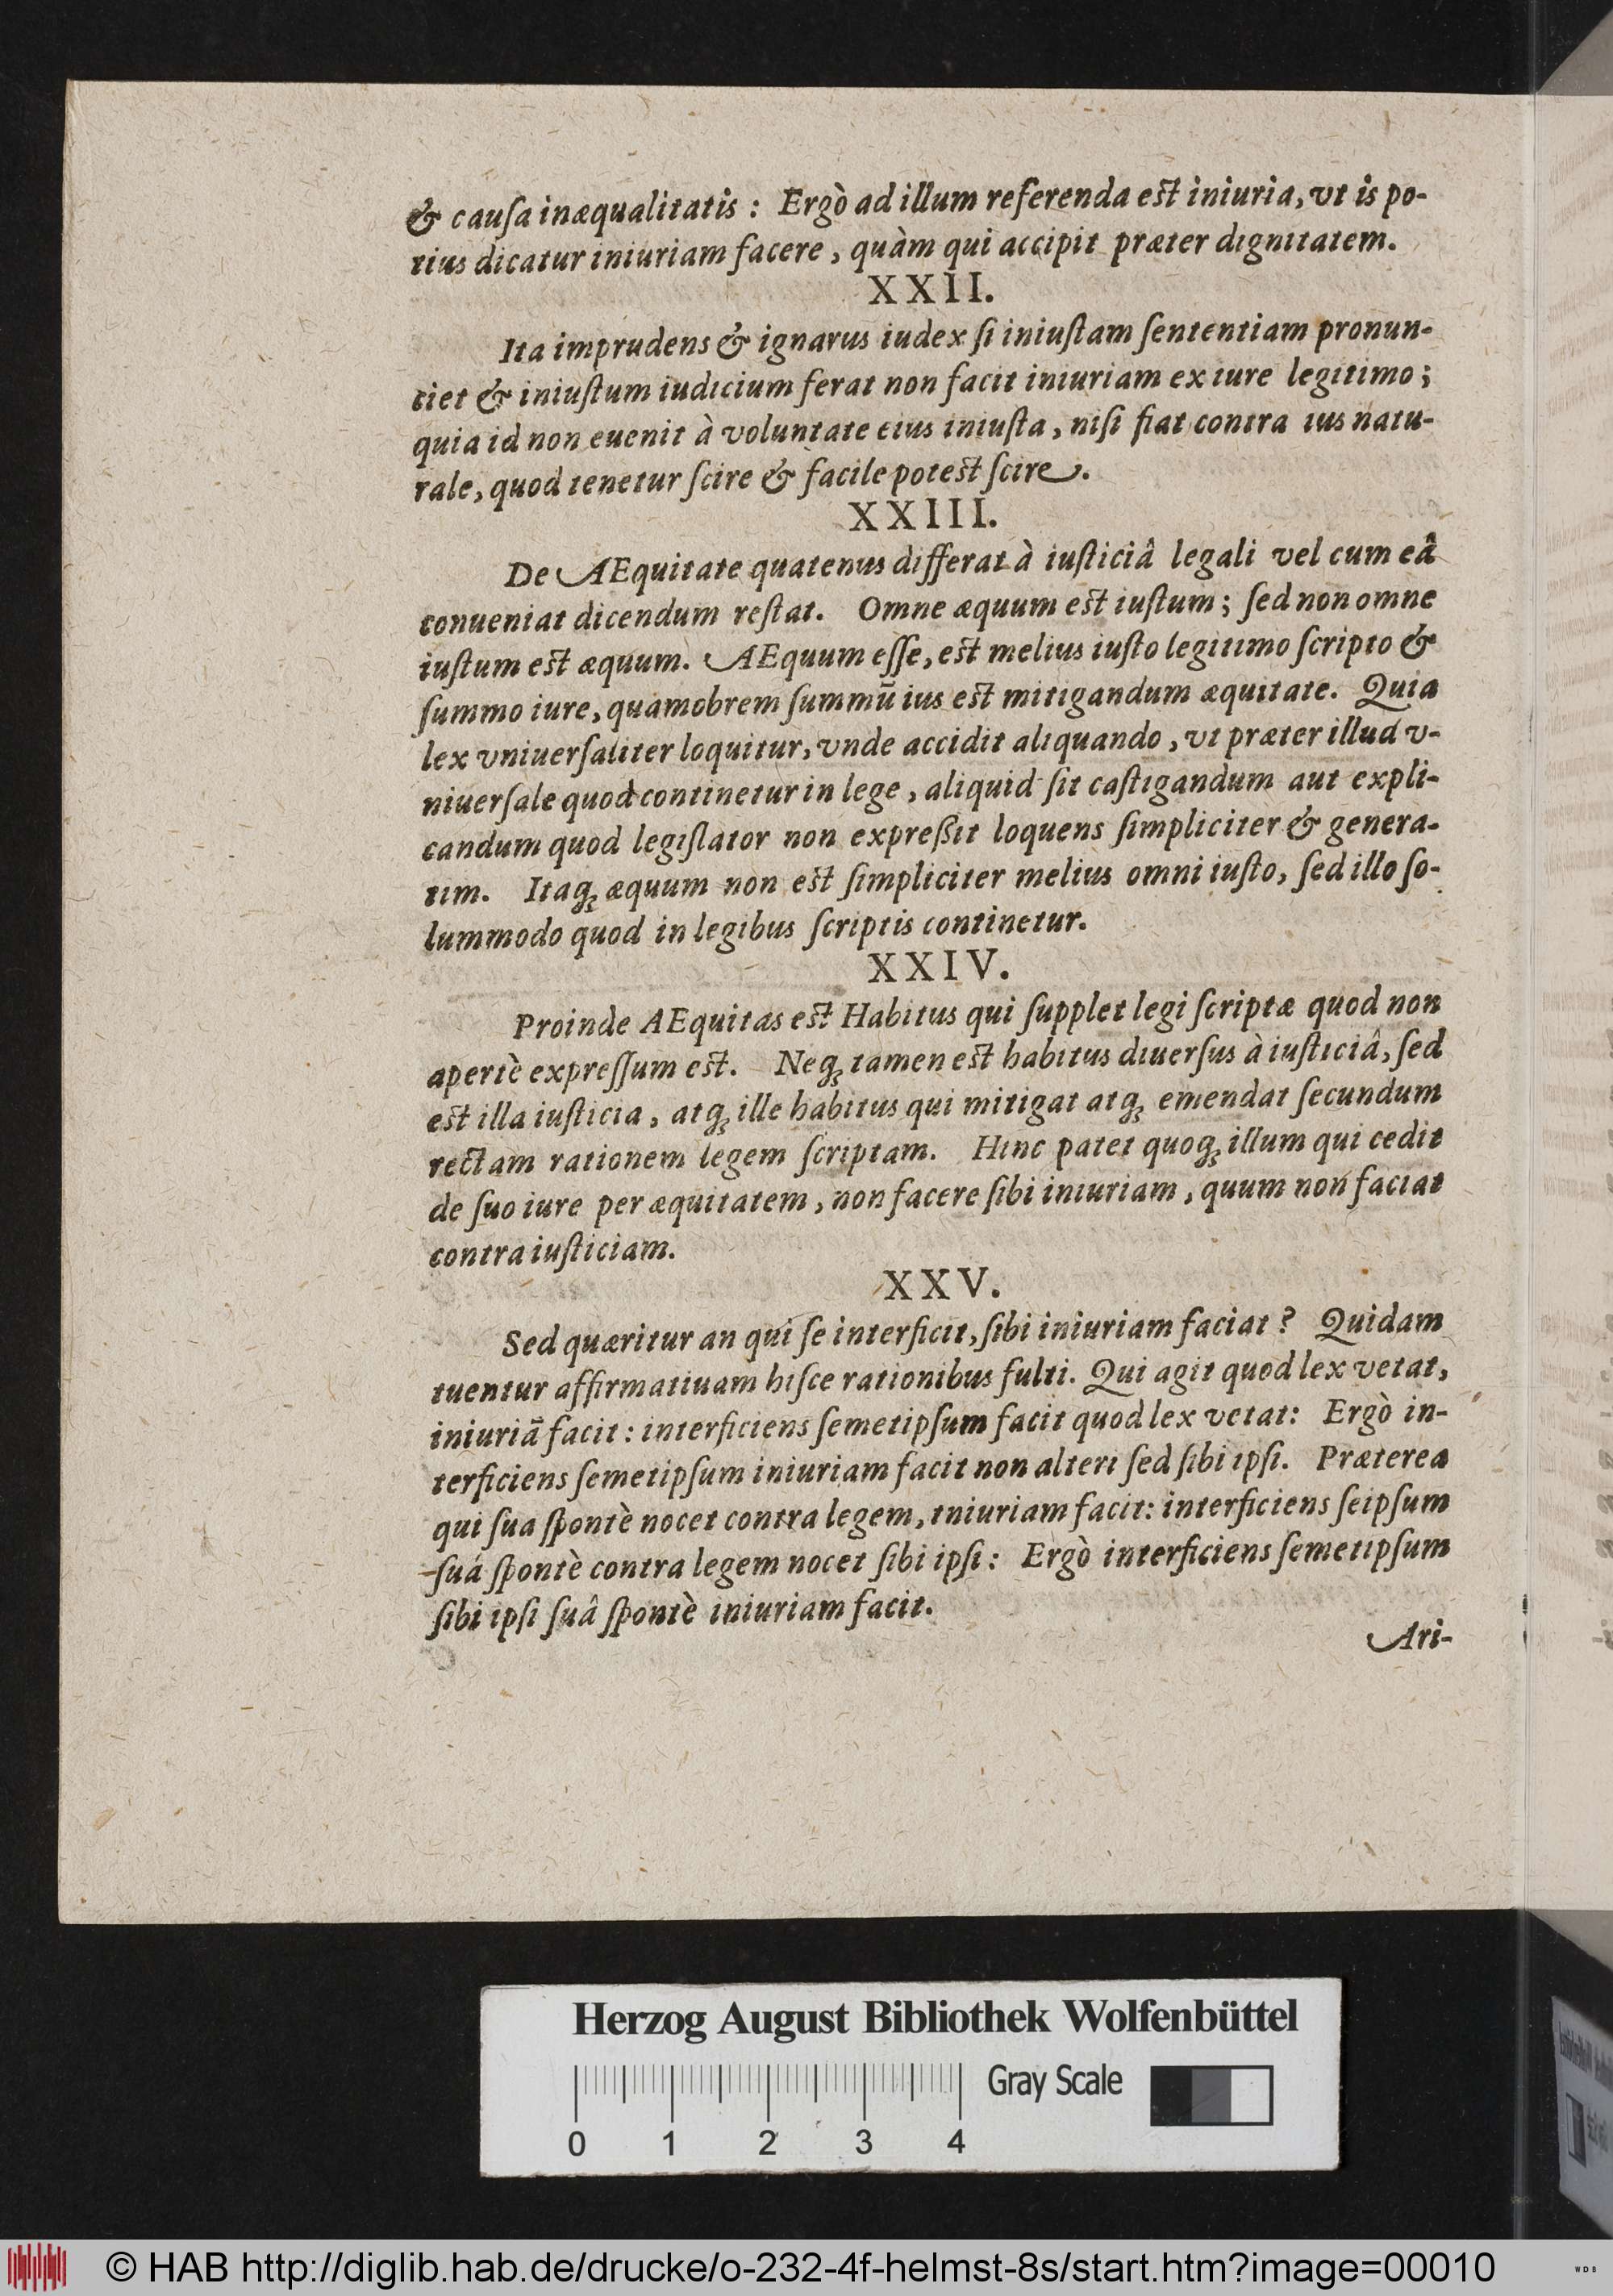 & cauſa inæqualitatis : Ergò ad illum referenda est iniuria, vt is po-
tius dicatur iniuriam facere, quàm qui accipit præter dignitatem.
XXII.
Ita imprudens & ignarus iudex ſi iniuſtam ſententiam pronun-
tiet & iniuſtum iudicium ferat non facit iniuriam ex iure legitimo;
quia id non euenit à voluntate eius iniuſta, niſi fiat contra ius natu-
rale, quod tenetur ſcire & facile potest ſcire.
XXIII.
De AEquitate quatenus differat à iuſticiâ legali vel cum eâ
conueniat dicendum reſtat. Omne æquum est iuſtum; ſed non omne
iuſtum est æquum. AEquum eſſe, est melius iuſto legitimo ſcripto &
ſummo iure, quamobrem ſummū ius est mitigandum æquitate. Quia
lex vniuerſaliter loquitur, vnde accidit aliquando, vt præter illud v-
niuerſale quod continetur in lege, aliquid ſit caſtigandum aut expli-
candum quod legiſlator non expreßit loquens ſimpliciter & genera-
tim. Itaqꝫ æquum non est ſimpliciter melius omni iuſto, ſed illo ſo-
lummodo quod in legibus ſcriptis continetur.
XXIV.
Proinde AEquitas est Habitus qui ſupplet legi ſcriptæ quod non
apertè expreſſum est. Neqꝫ tamen est habitus diuerſus à iuſticiâ, ſed
est illa iuſticia, atqꝫ ille habitus qui mitigat atqꝫ emendat ſecundum
rectam rationem legem ſcriptam. Hinc patet quoqꝫ illum qui cedit
de ſuo iure per æquitatem, non facere ſibi iniuriam, quum non faciat
contra iuſticiam.
XXV.
Sed quæritur an qui ſe interficit, ſibi iniuriam faciat? Quidam
tuentur affirmatiuam hiſce rationibus fulti. Qui agit quod lex vetat,
iniuriā facit : interficiens ſemetipſum facit quod lex vetat: Ergò in-
terficiens ſemetipſum iniuriam facit non alteri ſed ſibi ipſi. Præterea
qui ſua ſpontè nocet contra legem, iniuriam facit: interficiens ſeipſum
ſuá ſpontè contra legem nocet ſibi ipſi: Ergò interficiens ſemetipſum
ſibi ipſi ſuâ ſpontè iniuriam facit.
Ari-
Herzog August Bibliothek Wolfenbüttel
Gray Scale
0 1 2 3 4
© HAB http://diglib.hab.de/drucke/o-232-4f-helmst-8s/start.htm?image=00010
WDB